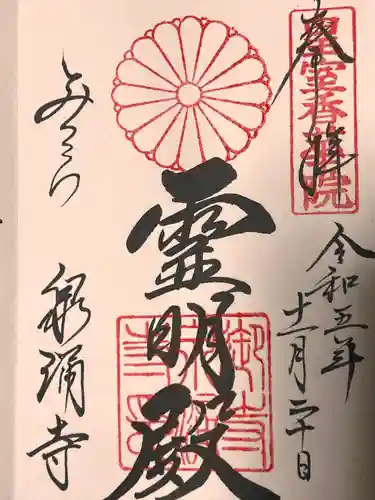 奉拝
皇室香華院
令和五年
十二月二十日
霊明殿
みてら
泉涌寺